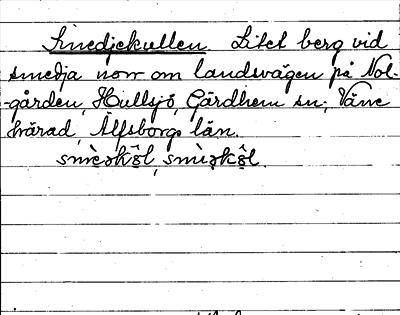 Smedjekullen. Litet berg vid
smedja norr om landsvägen på Nol-
-gården, Hullsjö, Gärdhem sn; Väne
härad, Älfsborgs län.